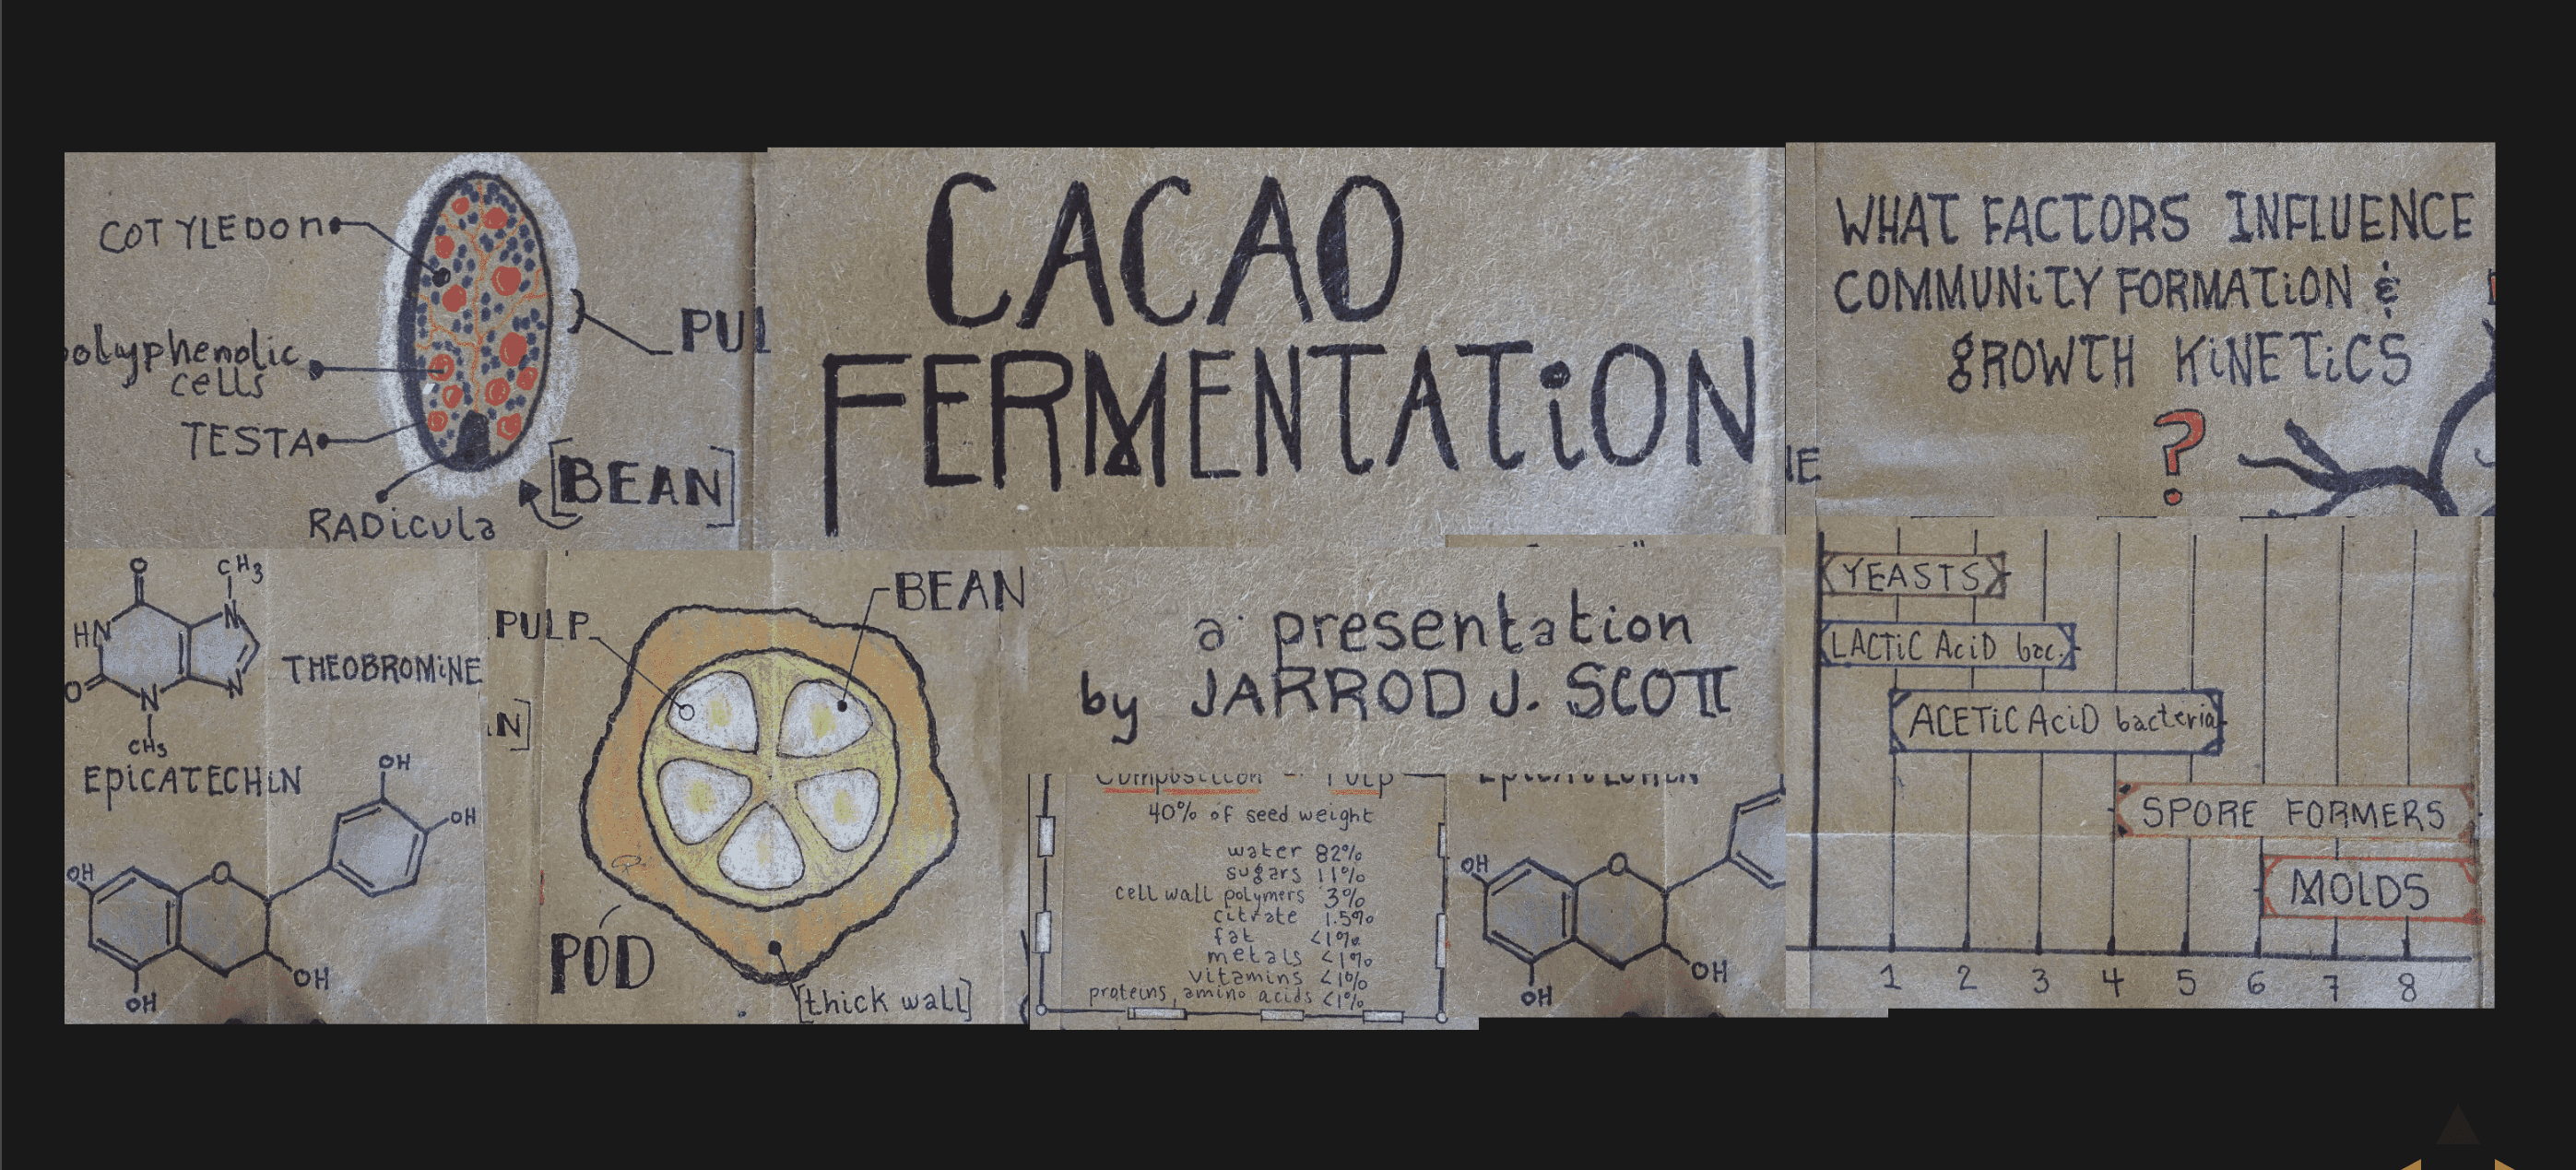 COTYLEDON
polyphenolic
cells
TESTA
RADicula
[BEAN]
CACAO
FERMENTATiON
WHAT FACTORS INFLUENCE
COMMUNiTY FORMATiON &
gROWTH KiNETiCS
?
O
CH3
HN
N
O
N
N
CH3
THEOBROMiNE
EpiCATECHiN
OH
OH
OH
O
OH
OH
PULP
BEAN
POD
[thick wall]
a presentation
by JARROD J. SCOTT
Composition - Pulp
40% of seed weight
water 82%
sugars 11%
cell wall polymers 3%
citrate 1.5%
fat <1%
metals <1%
vitamins <1%
proteins, amino acids <1%
OH
O
OH
OH
YEASTS
LACTiC AciD bac.
ACETiC AciD bacteria
SPORE FORMERS
MOLDS
1 2 3 4 5 6 7 8